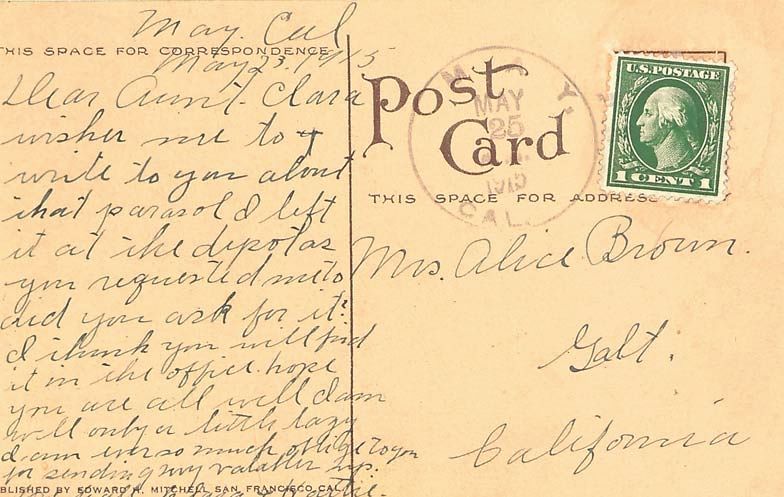 May. Cal
THIS SPACE FOR CORRESPONDENCE
May 23. 1915
Dear Aunt. Clara
wisher me to
write to you about
that parasol I left
it at the depot as
you requested me to
did you ask for it?
I think you will find
it in the office. hope
you are all well I am
well only a little lazy
I am ever so much oblige to you
for sending my valable
BLISHED BY EDWARD H. MITCHELL, SAN FRANCISCO, CAL.
Post
Card
MAY
25
1915
CAL.
U.S. POSTAGE
1 CENT 1
THIS SPACE FOR ADDRESS
Mrs. Alice Brown.
Galt.
California